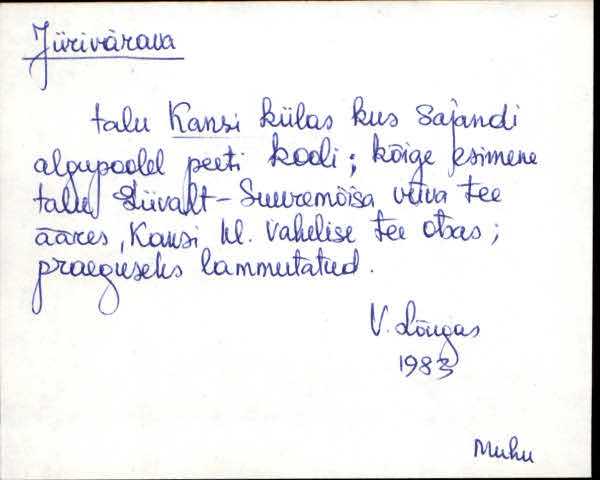 Jürivärava
talu Kansi külas kus sajandi
algupoolel peeti kooli; kõige esimene
talu Liivalt-Suuremõisa viiva tee
ääres, Kansi kl. vahelise tee otsas;
praeguseks lammutatud.
V. Lõugas
1983
Muhu